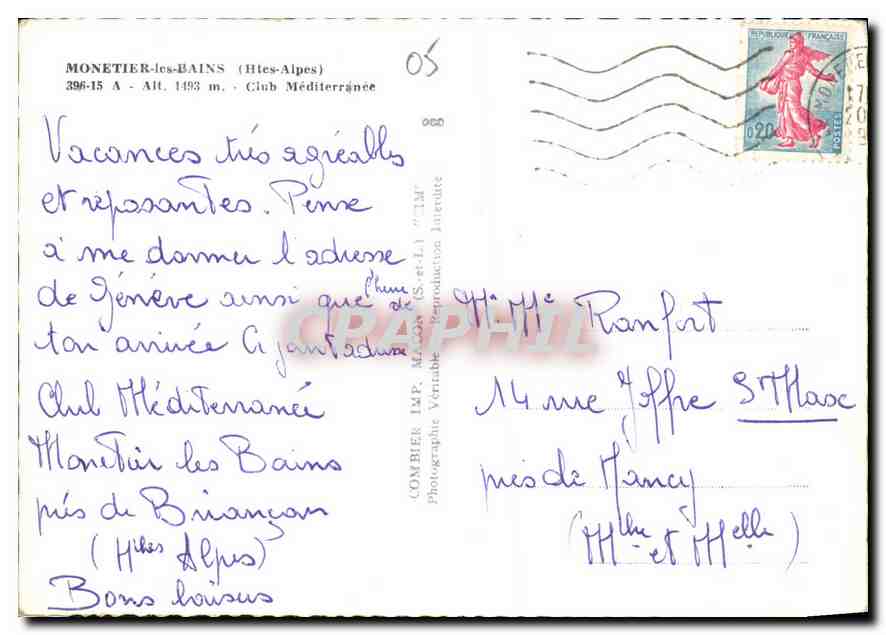 MONETIER-les-BAINS (Htes-Alpes)
396-15 A - Alt. 1493 m. - Club Méditerranée
05
Vacances très agréables
et reposantes. Pense
à me donner l'adresse
de Génève ainsi que l'heure de
ton arrivée Ci joint adresse
Club Méditerranée
Monetier les Bains
près de Briançon
(Htes Alpes)
Bons baisers
COMBIER IMP. MACON (S.-et-L.) "CIM"
Photographie Véritable Reproduction Interdite
REPUBLIQUE FRANÇAISE
0,20
POSTES
Ranfort
14 rue Joffre St Maxe
près de Nancy
(Mthe et Melle)
CPAPHIL